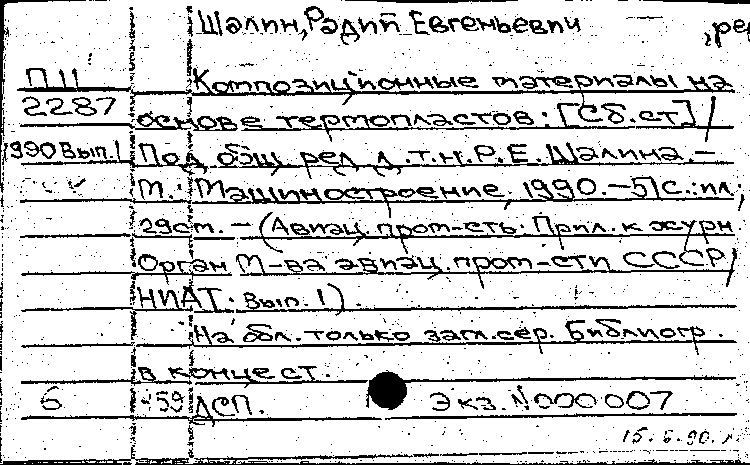 Шалин, Радий Евгеньевич , ре
П 11 Композиционные материалы на
2287 основе термопластов: [Сб. ст] /
1990 Вып. 1 Под общ. ред. д.т.н. Р.Е. Шалина. –
М.: Машиностроение, 1990. – 51 с.: ил;
29 см. – (Авиац. пром-сть: Прил. к журн
Орган М-ва авиац. пром-сти СССР /
НИАТ; Вып. 1).
На обл. только загл. сер. Библиогр.
в конце ст.
6 59 ДСП. Экз. N 000007
15.6.90.